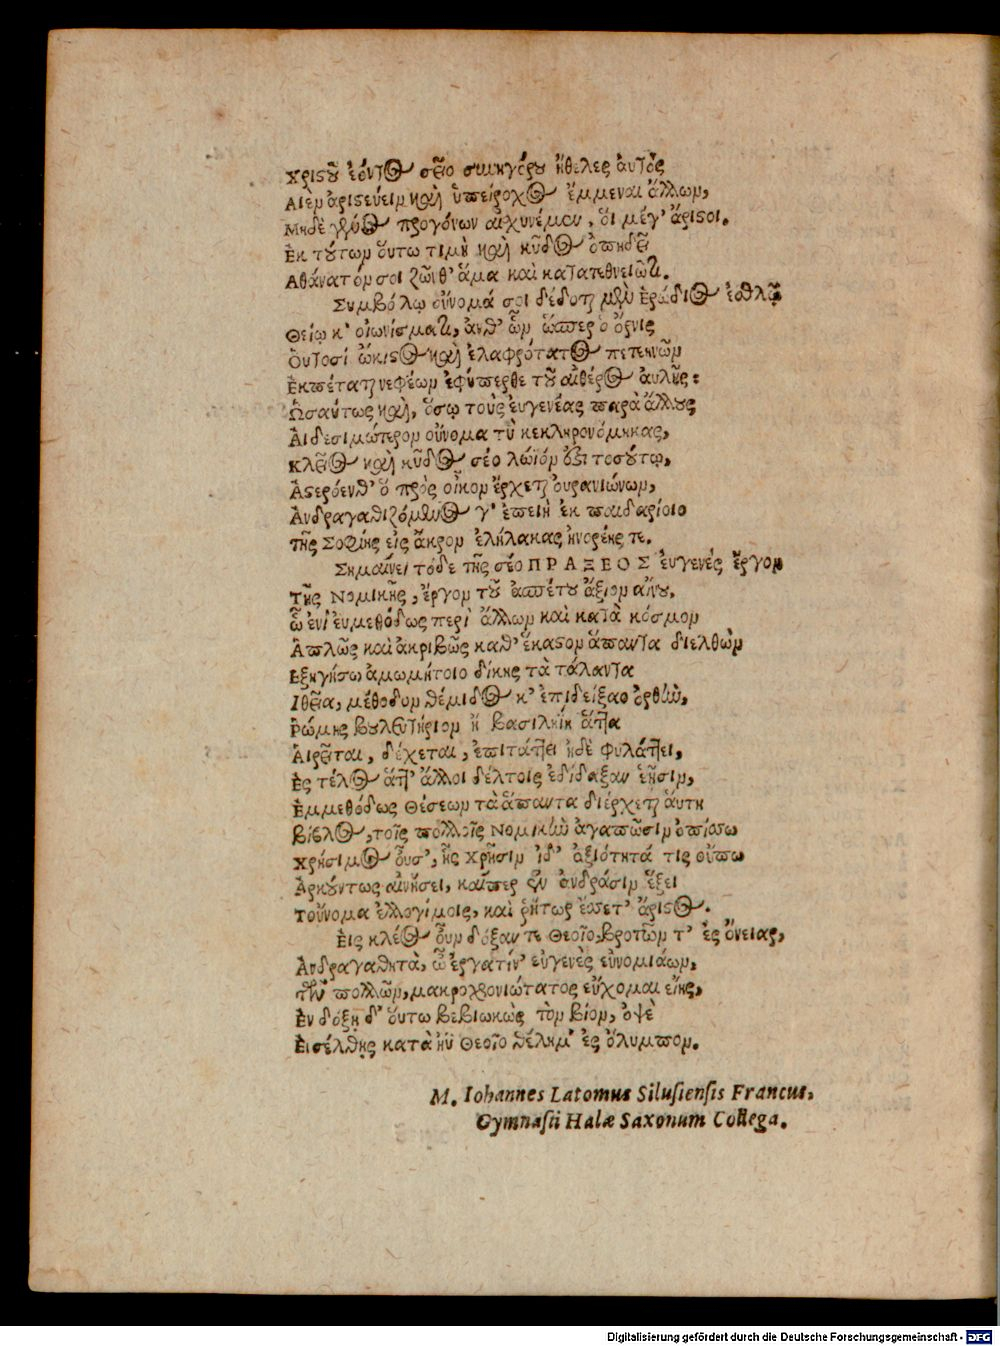 Χριστοῦ ἐόντος σεῖο συνηγόρου ἤθελες αὐτὸς
Αἰὲν ἀριστεύειν καὶ ὑπείροχος ἔμμεναι ἄλλων,
Μηδὲ γένος προγόνων αἰσχυνέμεν, ὅι μέγ' ἄριστοι.
Ἐκ τούτων οὕτω τιμὴ καὶ κῦδος ὀπηδεῖ
Ἀθάνατόν σοι ζῶνθ' ἅμα καὶ κατατεθνειῶτι.
Συμβόλῳ οὔνομά σοι δέδοται μὲν Ἐρώδιος ἐσθλῷ
Θείῳ κ' οἰωνίσματι, ἀνθ' ὧν ὥσπερ ὁ ὄρνις
Οὑτοσί ὤκιστος καὶ ἐλαφρότατος πετεηνῶν
Ἐκπέταται νεφέων ἐφύπερθε τοῦ αἰθέρος αὐλῆς:
Ὡσαύτως καὶ, ὅσῳ τοὺς εὐγενέας παρὰ ἄλλους
Αἰδεσιμώτερον οὔνομα τὺ κεκληρονόμηκας,
Κλεῖος καὶ κῦδος σέο λώϊόν ἐστι τοσούτῳ,
Ἀστερόενθ' ὃ πρὸς οἶκον ἔρχεται οὐρανιώνων,
Ἀνδραγαθιζόμενος γ' ἐπειὴ ἐκ παιδαρίοιο
Τῆς Σοφίης εἰς ἄκρον ἐλήλακας ἠνορέης τε.
Σημαίνει τόδε τῆς σέο ΠΡΑΞΕΟΣ εὐγενές ἔργον
Τῆς Νομικῆς, ἔργον τοῦ ἀσπέτου ἄξιον αἴνου.
ᾧ ἐνὶ εὐμεθόδως περὶ ἄλλων καὶ κατὰ κόσμον
Ἁπλῶς καὶ ἀκριβῶς καθ' ἕκαστον ἅπαντα διελθὼν
Ἐξηγήσω ἀμωμήτοιο δίκης τὰ τάλαντα
Ἰθεῖα, μέθοδον θέμιδος κ' ἐπιδείξαο ὀρθὴν,
Ῥώμης βουλευτήριον ἢ βασιληίη ἅττα
Αἱρεῖται, δέχεται, ἐπιτάττει ἠδὲ φυλάττει,
Ἐς τέλος ἅττ' ἄλλοι δέλτοις ἐδίδαξαν ἑῇσιν,
Ἐμμεθόδως Θέσεων τὰ ἅπαντα διέρχεται ἅυτη
Βίβλος, τοῖς πολλοῖς Νομικὴν ἀγαπῶσιν ὀπίσσω
Χρήσιμος οὖσ', ἧς χρῆσιν ἰδ' ἀξιότητά τις οὔπω
Ἀρκούντως αἰνήσει, καίπερ ἐὺν ἀνδράσιν ἕξει
Τοὔνομα ἐλλογίμοις, καὶ ῥήτωρ ἔσσετ' ἄριστος.
Εἰς κλέος οὖν δόξαν τε Θεοῖο, βροτῶν τ' ἐς ὄνειαρ,
Ἀνδραγαθητὰ, ὦ ἐργατίν' εὐγενὲς εὐνομιάων,
τὴν πολλῶν, μακροχρονιώτατος εὔχομαι εἴης,
Ἐν δόξῃ δ' οὕτω βεβιωκὼς τὸν βίον, ὀψὲ
Εἰσέλθῃς κατὰ ἣν Θεοῖο θέλημ' ἐς ὄλυμπον.
M. Iohannes Latomus Silusiensis Francus,
Gymnasii Halæ Saxonum Collega.
Digitalisierung gefördert durch die Deutsche Forschungsgemeinschaft - DFG